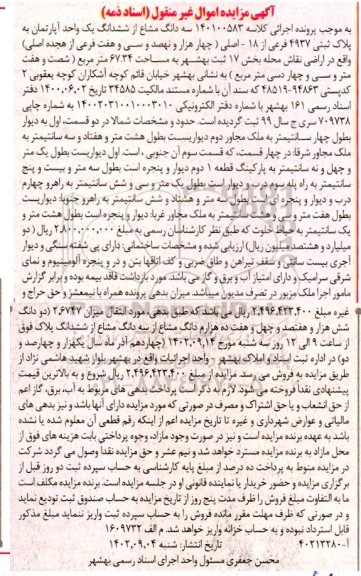 آگهی مزایده اموال غیر منقول (اسناد ذمه)
به موجب پرونده اجرائی کلاسه ۱۴۰۱۰۰۵۸۳ سه دانگ مشاع از ششدانگ یک واحد آپارتمان به
پلاک ثبتی ۴۹۳۷ فرعی از ۱۸ - اصلی (چهار هزار و نهصد و سی و هفت فرعی از هجده اصلی)
واقع در اراضی نقاش محله بخش ۱۷ ثبت بهشهر به مساحت ۶۷.۳۴ متر مربع (شصت و هفت
متر و سی و چهار دسی متر مربع) به نشانی بهشهر خیابان قائم کوچه آشکاران کوچه یعقوبی ۲
کدپستی ۹۴۸۶۳-۴۸۵۱۹ که سند آن با شماره مستند مالکیت ۳۴۵۸۵ تاریخ ۱۴۰۰.۰۶.۰۲ دفتر
اسناد رسمی ۱۶۱ بهشهر با شماره دفتر الکترونیکی ۱۴۰۰۲۰۳۱۰۰۱۰۰۰۳۰۱۰ به شماره چاپی
۷۰۹۷۳۸ سری ج سال ۹۹ ثبت گردیده است. حدود و مشخصات شمالا در دو قسمت، اول به دیوار
بطول چهار سانتیمتر به ملک مجاور دوم دیواریست بطول هشت متر و هفتاد و سه سانتیمتر به
ملک مجاور شرقا: در چهار قسمت، که قسمت سوم آن جنوبی، است. اول دیواریست بطول یک متر
و چهل و نه سانتیمتر به پارکینگ قطعه ۱ دوم دیوار و پنجره است بطول سه متر و بیست و پنج
سانتیمتر به راه پله سوم در و دیوار است بطول یک متر و سی و شش سانتیمتر به راهرو چهارم
درب و دیوار و پنجره ای است بطول سه متر و هشتاد و شش سانتیمتر به راهرو جنوبا: دیواریست
بطول هفت متر و سانتیمتر به ملک مجاور غربا: دیوار و پنجره است بطول هشت متر و
یک سانتیمتر به حیاط خلوت که طبق نظر کارشناس رسمی به مبلغ ۲.۸۰۰.۰۰۰.۰۰۰ ریال (دو
میلیارد و هشتصد میلیون ریال) ارزیابی شده و مشخصات ساختمانی: دارای پی شفته سنگی و دیوار
آجری بیست سانتی و سقف تیرآهن و طاق ضربی و کف اتاقها بتن و در و پنجره آلومینیوم و نمای
شرقی سرامیک و دارای امتیاز آب و برق و گاز می باشد. مورد بازداشت فاقد بیمه بوده و برابر گزارش
مامور اجرا ملک مزبور در تصرف مدیون میباشد. میزان بدهی پرونده همراه با نیمعشر و حق حراج و
غیره مبلغ ۲.۴۹۶.۴۲۳.۴۰۰ ریال می باشد که طبق بدهی مورد انتقال میزان ۲.۶۷۴۷ (دو دانگ
شش هزار و هفتصد و چهل و هفت ده هزارم دانگ مشاع از سه دانگ مشاع از ششدانگ پلاک فوق
از ساعت ۹ الی ۱۲ روز سه شنبه مورخ ۱۴۰۲.۰۹.۱۴ (چهاردهم آذر ماه سال یکهزار و چهارصد و
دو) در اداره ثبت اسناد و املاک بهشهر - واحد اجرائیات واقع در بهشهر بلوار شهید هاشمی نژاد از
طریق مزایده به فروش می رسد. مزایده از مبلغ ۲.۴۹۶.۴۲۳.۴۰۰ ریال شروع و به بالاترین قیمت
پیشنهادی نقداً فروخته می شود. لازم به ذکر است پرداخت بدهی های مربوط به آب، برق، گاز اعم
از حق انشعاب و یا حق اشتراک و مصرف در صورتی که مورد مزایده دارای آنها باشد و نیز بدهی های
مالیاتی و عوارض شهرداری و غیره تا تاریخ مزایده اعم از اینکه رقم قطعی آن معلوم شده یا نشده
باشد به عهده برنده مزایده است و نیز در صورت وجود مازاد، وجوه پرداختی بابت هزینه های فوق از
محل مازاد به برنده مزایده مسترد خواهد شد و نیم عشر و حق مزایده نقدا وصول می گردد شرکت
در مزایده منوط به پرداخت ده درصد از مبلغ پایه کارشناسی به حساب سپرده ثبت دو روز قبل از
برگزاری مزایده و حضور خریدار یا نماینده قانونی او در جلسه مزایده است. برنده مزایده مکلف است
ما به التفاوت مبلغ فروش را ظرف مدت پنج روز از تاریخ مزایده به حساب صندوق ثبت تودیع نماید
و در صورتی که ظرف مهلت مقرر مانده فروش را به حساب سپرده ثبت واریز ننماید مبلغ مذکور
قابل استرداد نبوده و به حساب خزانه واریز خواهد شد. م الف ۱۶۰۹۷۳۲
آ-۴۰۲۱۳۲۸۰ تاریخ انتشار: شنبه ۱۴۰۲.۰۹.۰۴
محسن جعفری مسئول واحد اجرای اسناد رسمی بهشهر